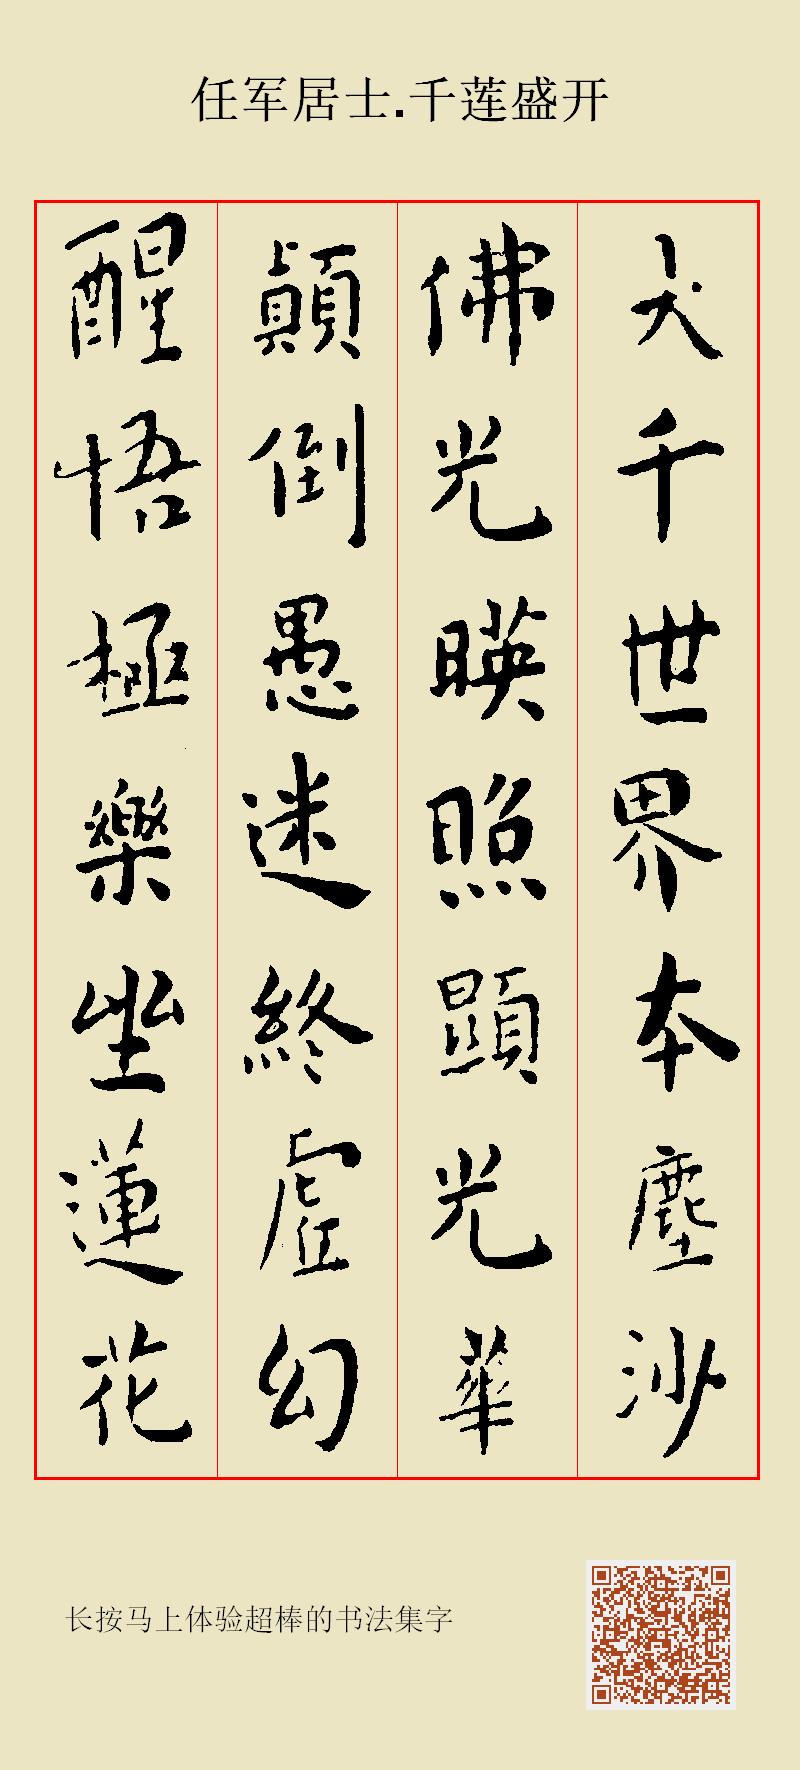 任军居士.千莲盛开
大千世界本塵沙
佛光暎照顯光華
顛倒愚迷終虛幻
醒悟極樂坐蓮花
长按马上体验超棒的书法集字